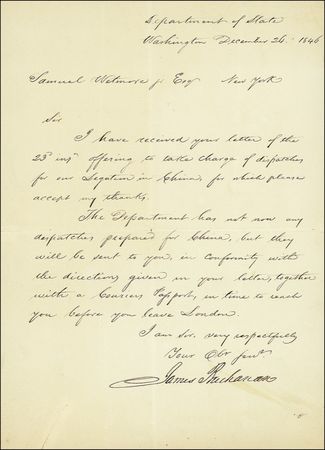 Department of State
Washington December 26. 1846
Samuel Wetmore jr Esqr New York
Sir
I have received your letter of the
23d inst offering to take charge of dispatches
for our Legation in China, for which please
accept my thanks.
The Department has not now any
dispatches prepared for China, but they
will be sent to you, in conformity with
the directions given in your letter, together
with a Couriers Passport, in time to reach
you before you leave London.
I am Sir, very respectfully
Your Obt servt
James Buchanan